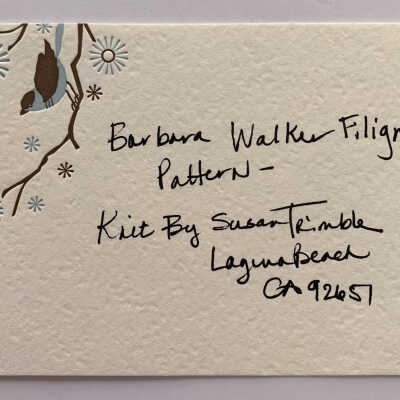 Barbara Walker Filigr
Pattern -
Knit By Susan Trimble
Laguna Beach
CA 92651